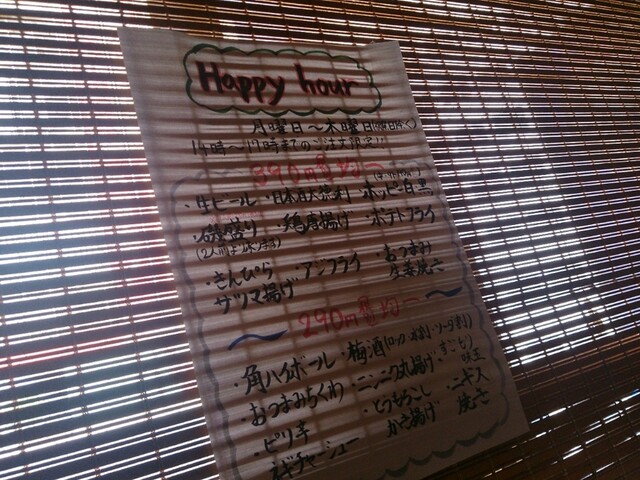 Happy hour
月曜日～木曜日(祝日除く)
14時～17時までのご注文限定!!
390円均一
・生ビール ・日本酒大徳利 ・ホッピー白黒
・磯盛り ・鶏唐揚げ ・ポテトフライ
・きんぴら ・アジフライ ・おつまみ
サツマ揚げ 生姜焼き
290円均一
・角ハイボール ・梅酒(ロック・水割・ソーダ割)
・おつまみちくわ ・ニンニク丸揚げ
・ピリ辛 ・とうもろこし ・ニギス
ネギチャーシュー かき揚げ 焼き